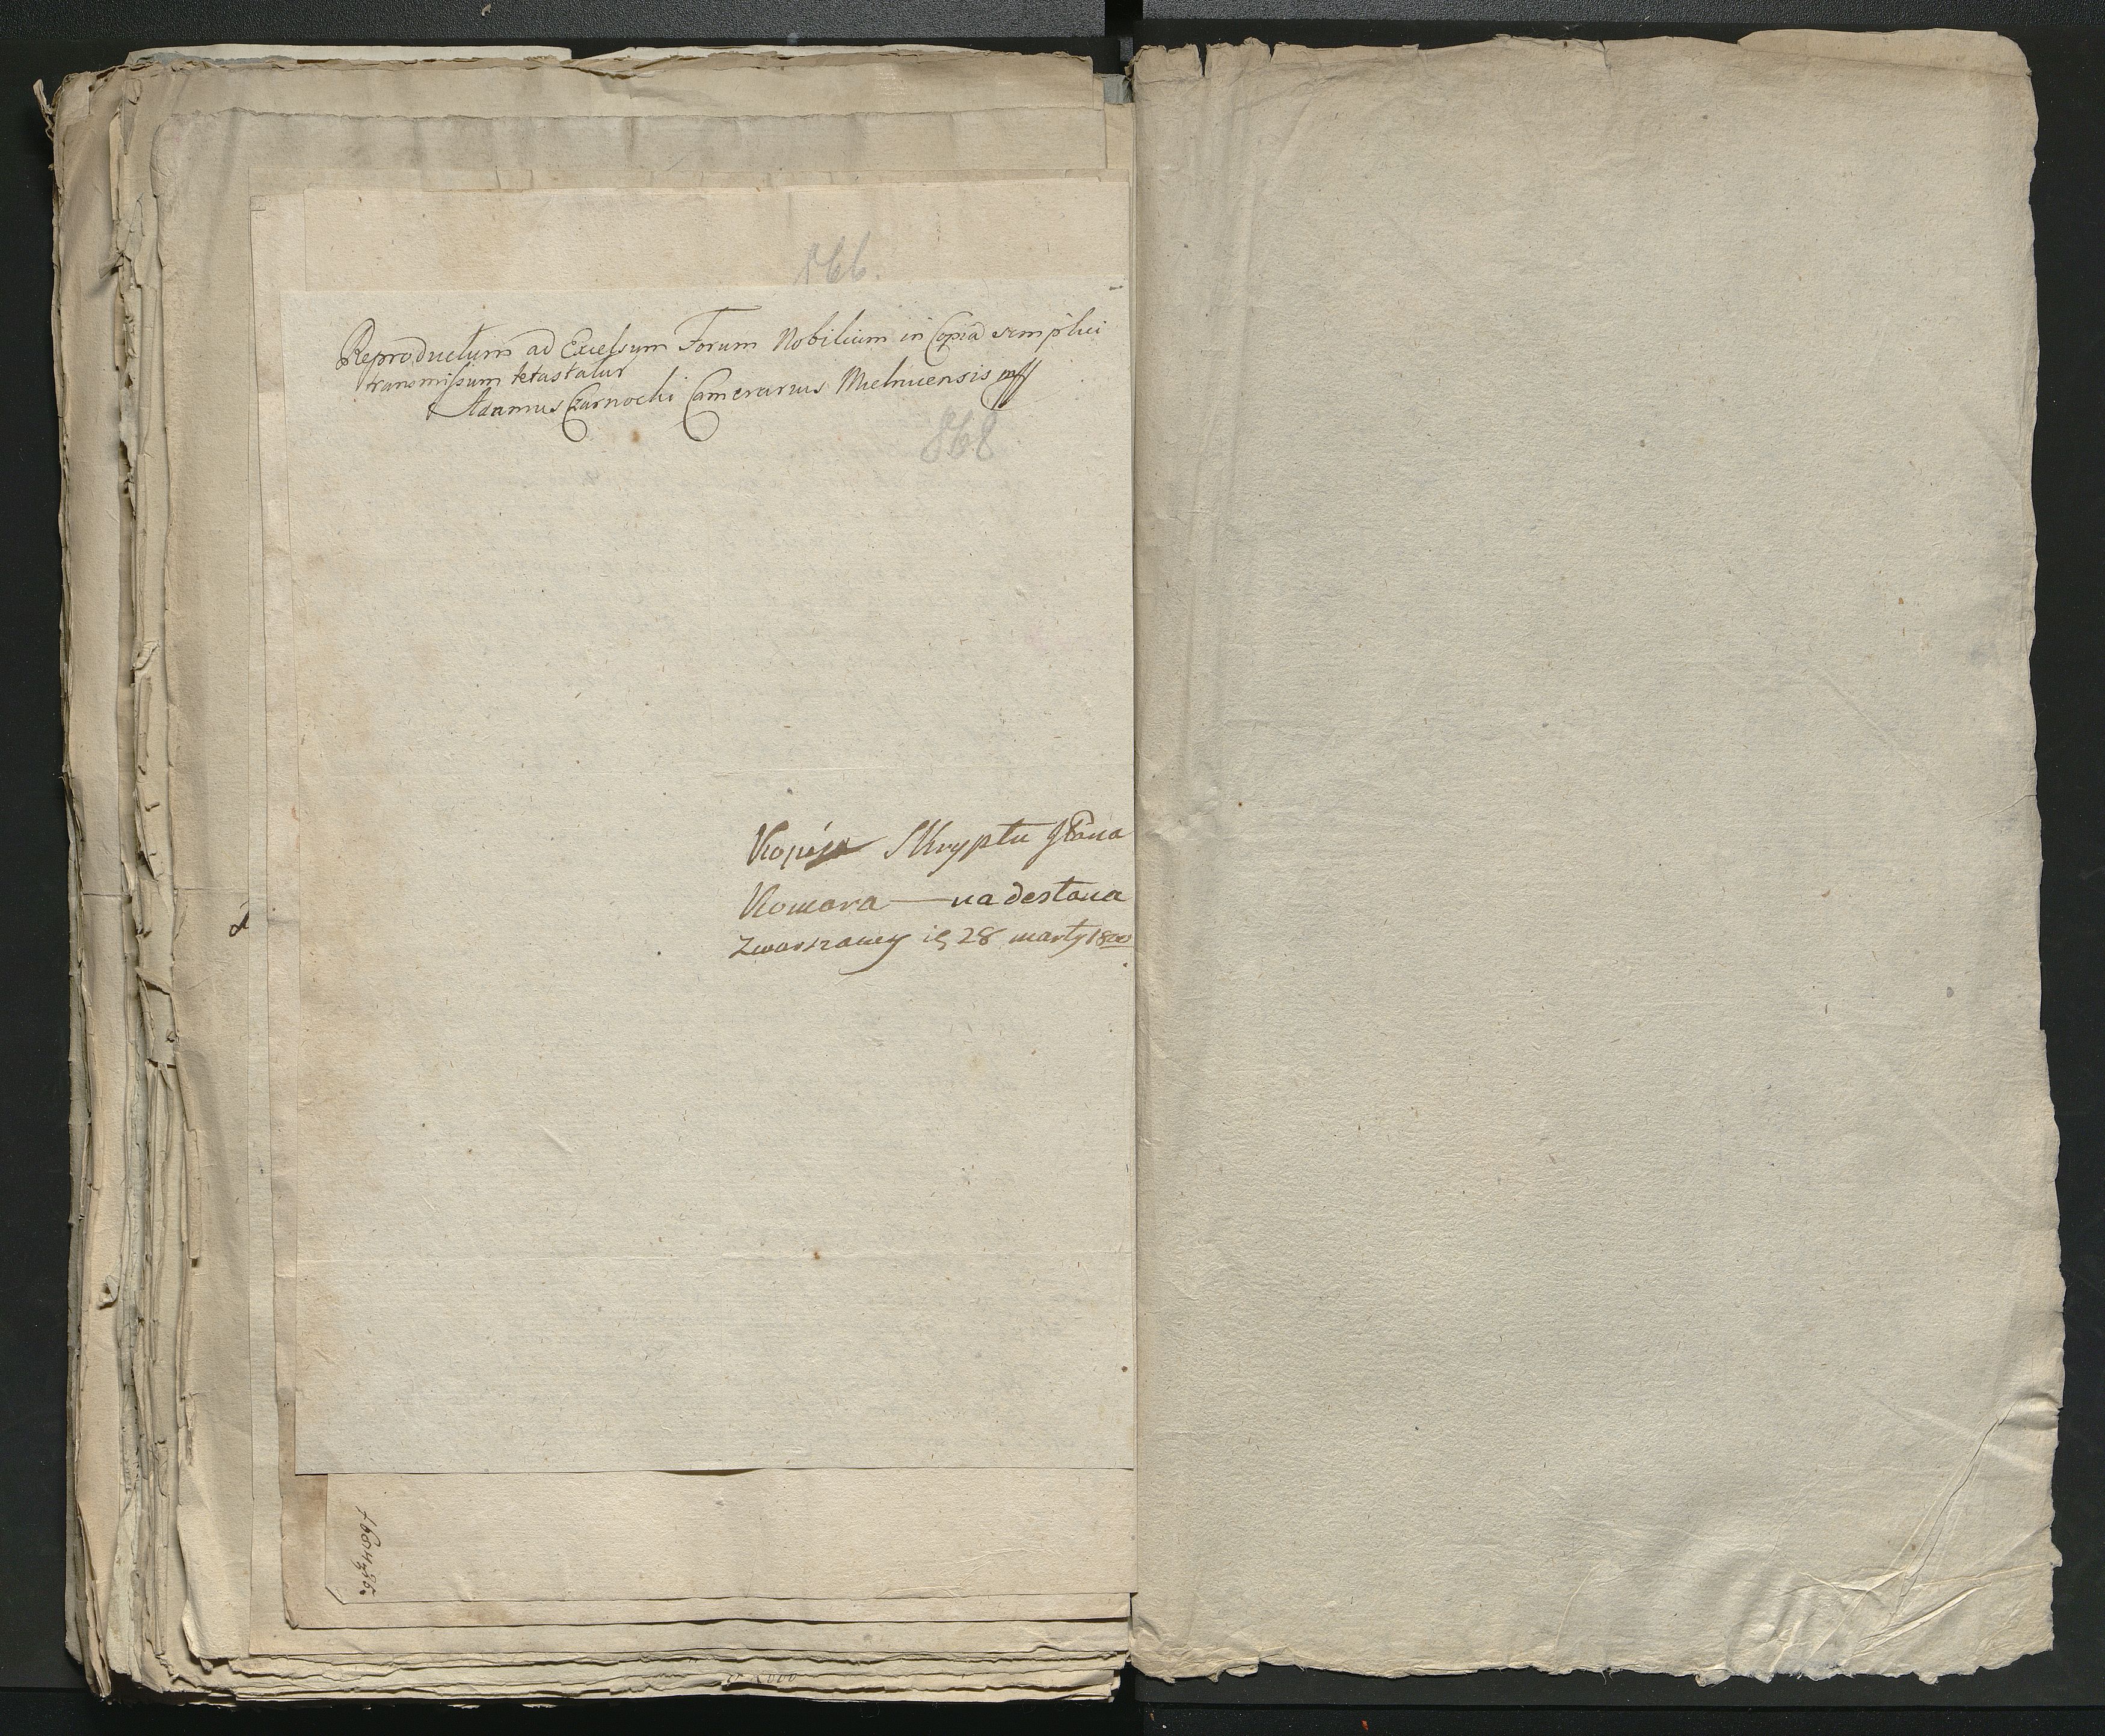 866.
Reproductum ad Excelsum Forum Nobilium in Copia simplici
transmissum tetastatur
Adamus Czarnocki Camerarius Mielnicensis mpp
868
Kopija Skryptu JPana
Komara — nadesłana
z warszawy is 28 marty 1800